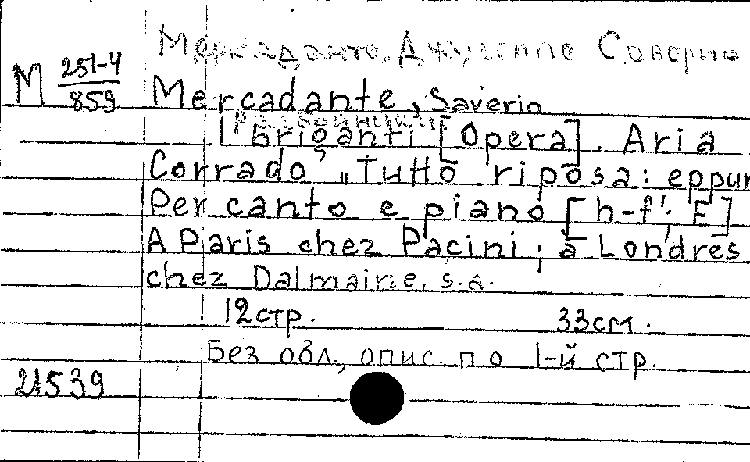 Меркаданте, Джузеппе Саверио
М 251-4
859
Mercadante, Saverio
I Briganti [Opera]. Aria
Corrado „Tutto riposa: eppur
Per canto e piano [h-f'; E]
A Paris chez Pacini; à Londres
chez Dalmaine. s.a.
12 стр. 33 см.
Без обл., опис. по 1-й стр.
21539